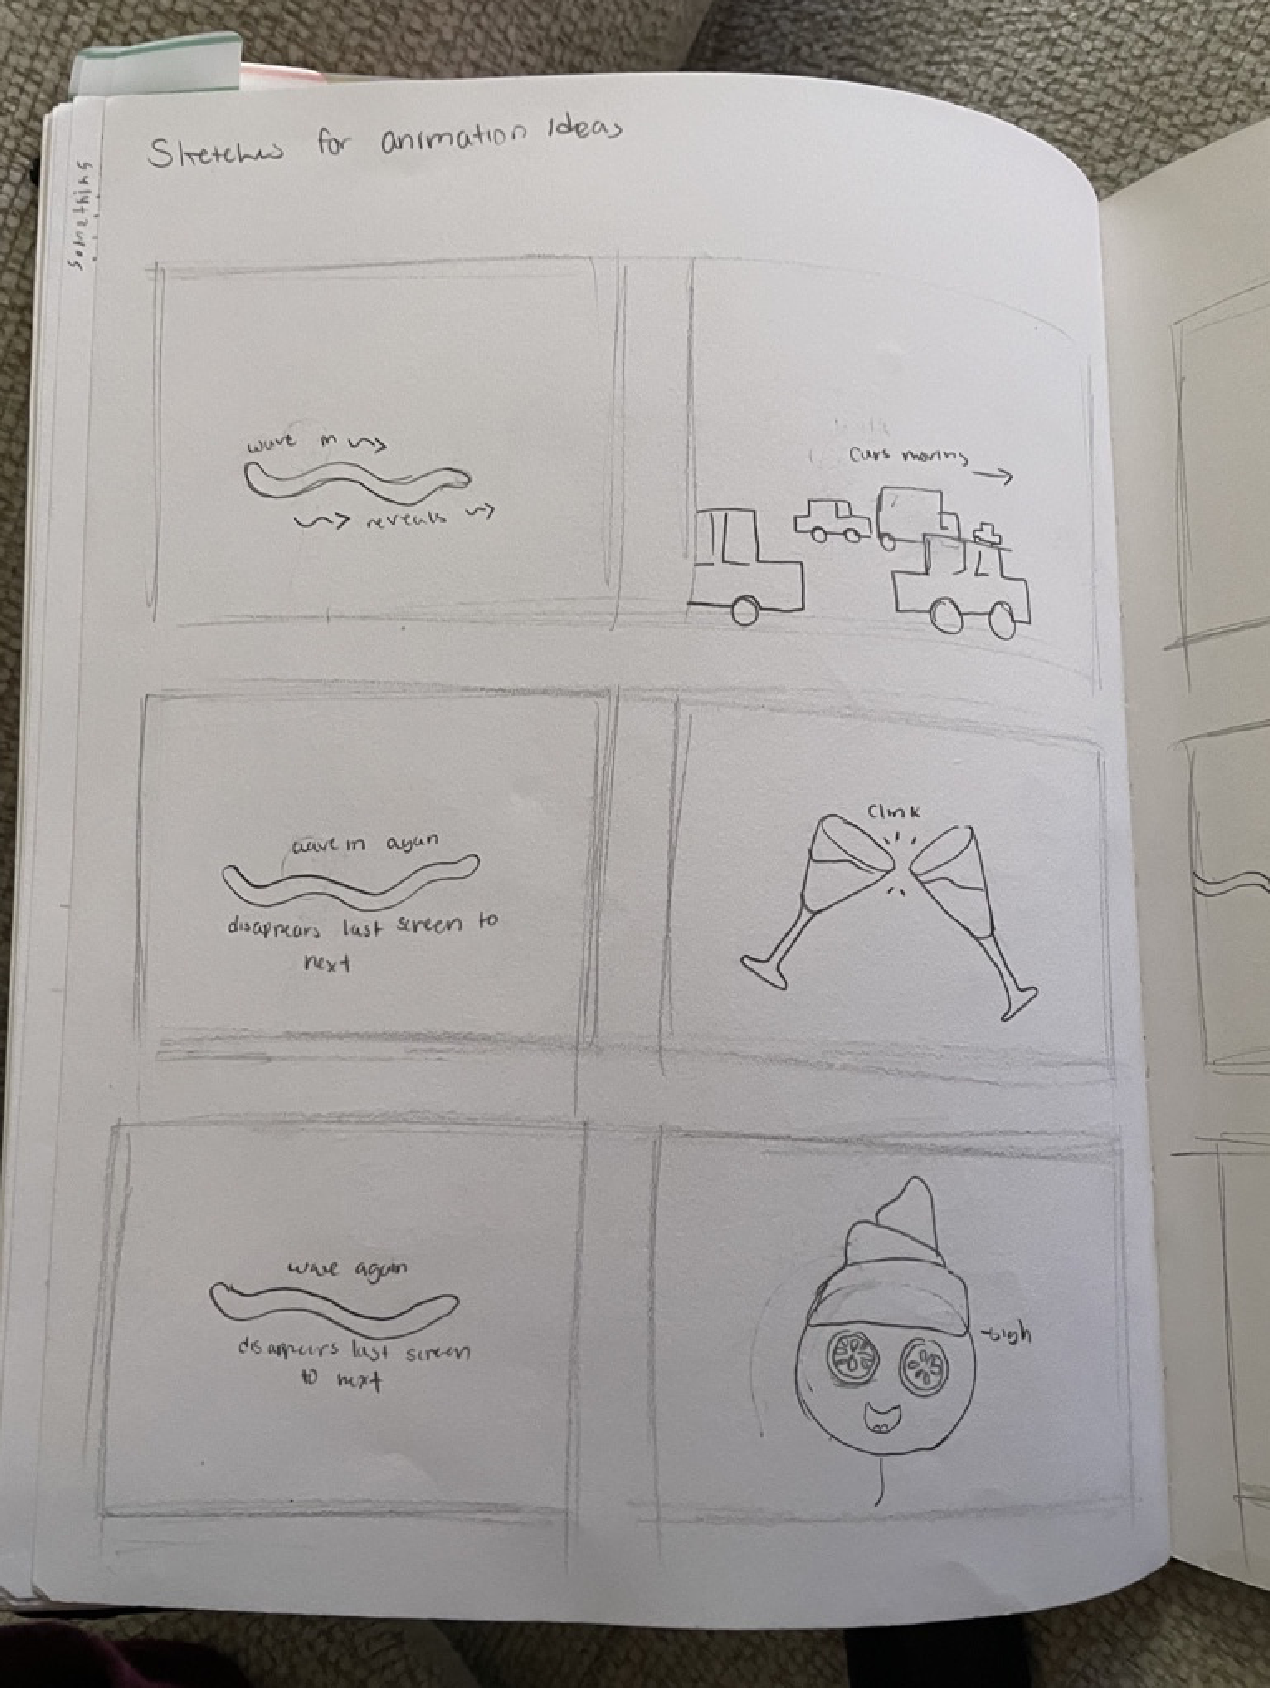 Sketches for animation Ideas
something
wave in
reveals
Cars moving
wave in again
disappears last screen to
next
Clink
wave again
disappears last screen
to next
sigh